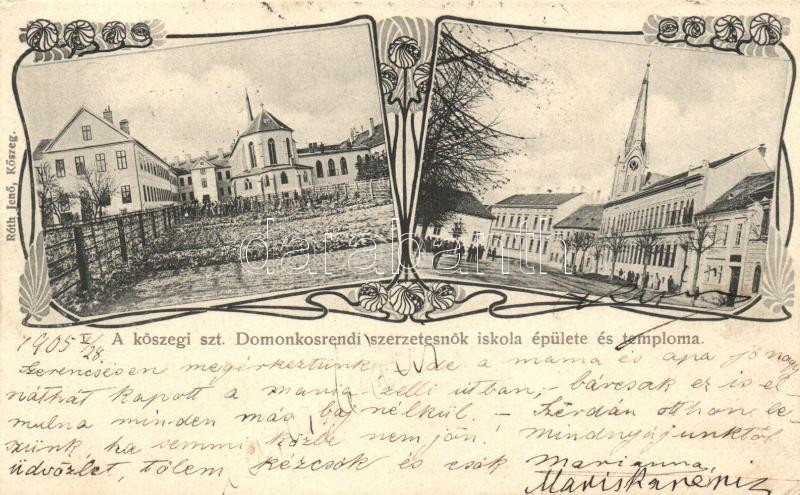 Róth Jenő, Kőszeg.
darabanth
A kőszegi szt. Domonkosrendi szerzetesnők iskola épülete és temploma.
1905 V/28
Szerencsésen megérkeztünk de a mama és apa jó nagy
náthát kapott a maria zelli útban, - bárcsak ez is el
mulna minden más baj nélkül. - Szerdán otthon le
szünk, ha semmi közbe nem jön! mindnyájunktól
üdvözlet, tőlem kézcsók és csók Marianna,
Mariska néni